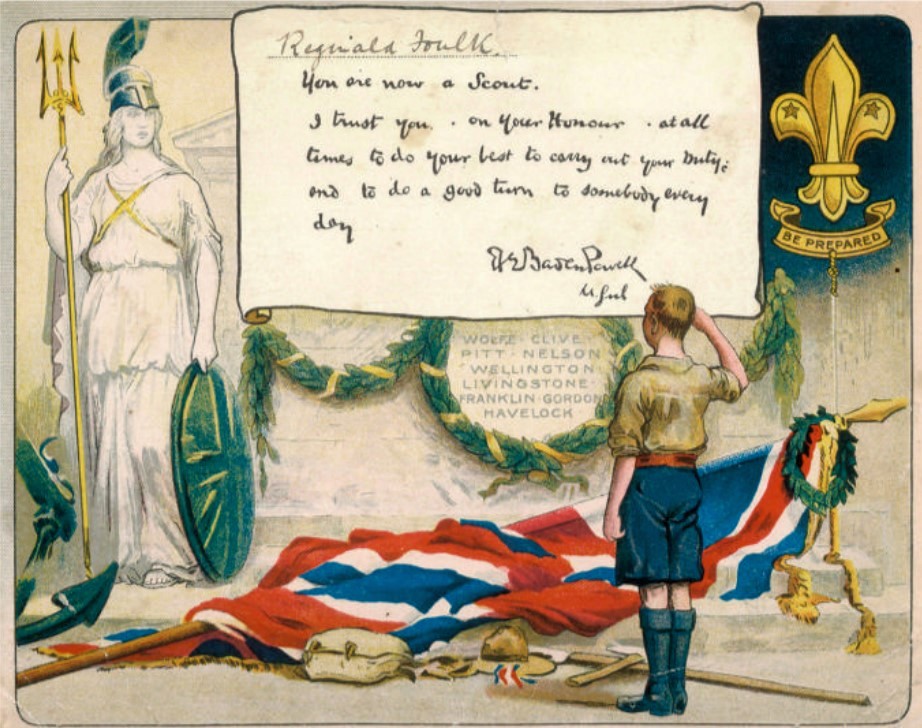 Reginald Foulk.
You are now a Scout.
I trust you. . on your Honour . at all
times to do your best to carry out your Duty;
and to do a good turn to somebody every
day
Baden Powell
BE PREPARED
WOLFE · CLIVE ·
PITT · NELSON
· WELLINGTON
LIVINGSTONE ·
FRANKLIN · GORDON
HAVELOCK